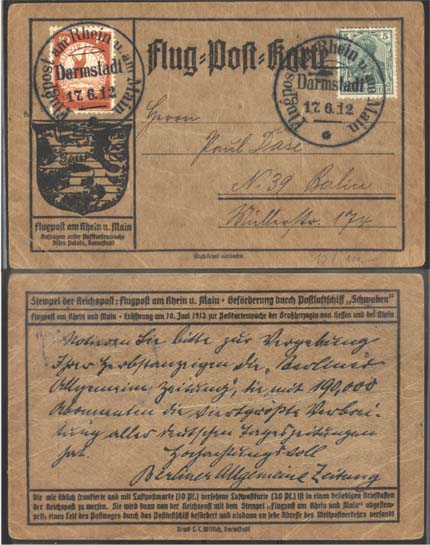 Flugpost am Rhein u. am Main
Darmstadt
17.6.12
Flug-Post-Karte
Flugpost am Rhein u. am Main
Darmstadt
17.6.12
5
Herrn
Paul Dase
N. 39 Berlin
Müllerstr. 174
Flugpost am Rhein u. Main
Anfragen unter Postkartenwoche
Altes Palais, Darmstadt
Stempel der Reichspost: Flugpost am Rhein u. Main · Beförderung durch Postluftschiff „Schwaben"
Flugpost am Rhein und Main · Eröffnung am 10. Juni 1912 zur Postkartenwoche der Großherzogin von Hessen und bei Rhein
Notieren Sie bitte zur Vergebung
Ihrer Herbstanzeigen die „Berliner
Allgemeine Zeitung", die mit 190,000
Abonnenten die viertgrößte Verbrei-
tung aller deutschen Tageszeitungen
hat. Hochachtungsvoll
Berliner Allgemeine Zeitung
Die wie üblich frankierte und mit Luftpostmarke (10 Pf.) versehene Luftpostkarte (20 Pf.) ist in einen beliebigen Briefkasten
der Reichspost zu werfen. Sie wird dann von der Reichspost mit dem Stempel „Flugpost am Rhein und Main" abgestem-
pelt; ein Teil des Postweges durch das Postluftschiff befördert und alsdann an jede Adresse des Weltpostvereins versandt
Druck L.C. Wittich, Darmstadt